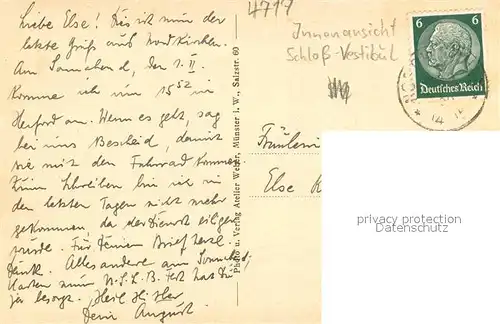 Liebe Else! Dies ist nun der
letzte Gruß aus Nordkirchen.
Am Sonnabend, den 1. II.
komme ich um 15⁵² in
Herford an. Wenn es geht, sag
bei uns Bescheid, damit
sie mit dem Fahrrad kommen.
Zum Schreiben bin ich in
den letzten Tagen nicht mehr
gekommen, da der Dienst eiliger
wurde. Für Deinen Brief herzl.
Dank. Alles andere am Sonnabend,
Karten zum N.S.L.B. Fest hast Du
ja besorgt. Heil Hitler
Dein August
Photo u. Verlag Atelier Münster i. W., Salzstr. 60
4717
Innenansicht
Schloß-Vestibül
6 6
Deutsches Reich
Fräulein
Else K
privacy protection
Datenschutz